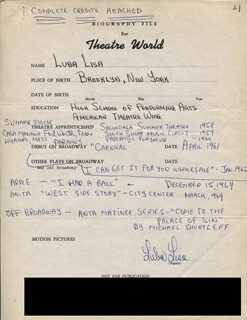 COMPLETE CREDITS ATTACHED
21
BIOGRAPHY FILE
For
Theatre World
NAME LUBA LISA
PLACE OF BIRTH BROOKLYN, NEW YORK
DATE OF BIRTH
Day Month Year
EDUCATION HIGH SCHOOL OF PERFORMING ARTS
AMERICAN THEATRE WING
SUMMER STOCK
THEATRE APPRENTICESHIP SACANDAGA SUMMER THEATRE 1958
CASA MANANA FT. WORTH, TEX. SOUTH SHORE MUSIC CIRCUS 1959
PLAYHOUSE 1960
DEBUT ON BROADWAY "CARNIVAL" DATE APRIL 1961
OTHER PLAYS ON BROADWAY
"I CAN GET IT FOR YOU WHOLESALE" - JAN 1962
"I HAD A BALL" - DECEMBER 15, 1964
"WEST SIDE STORY" - CITY CENTER MARCH, 1964
OFF BROADWAY - ANTA MATINEE SERIES - "COME TO THE
PALACE OF SIN"
BY MICHAEL SHURTLEFF
MOTION PICTURES
Luba Lisa